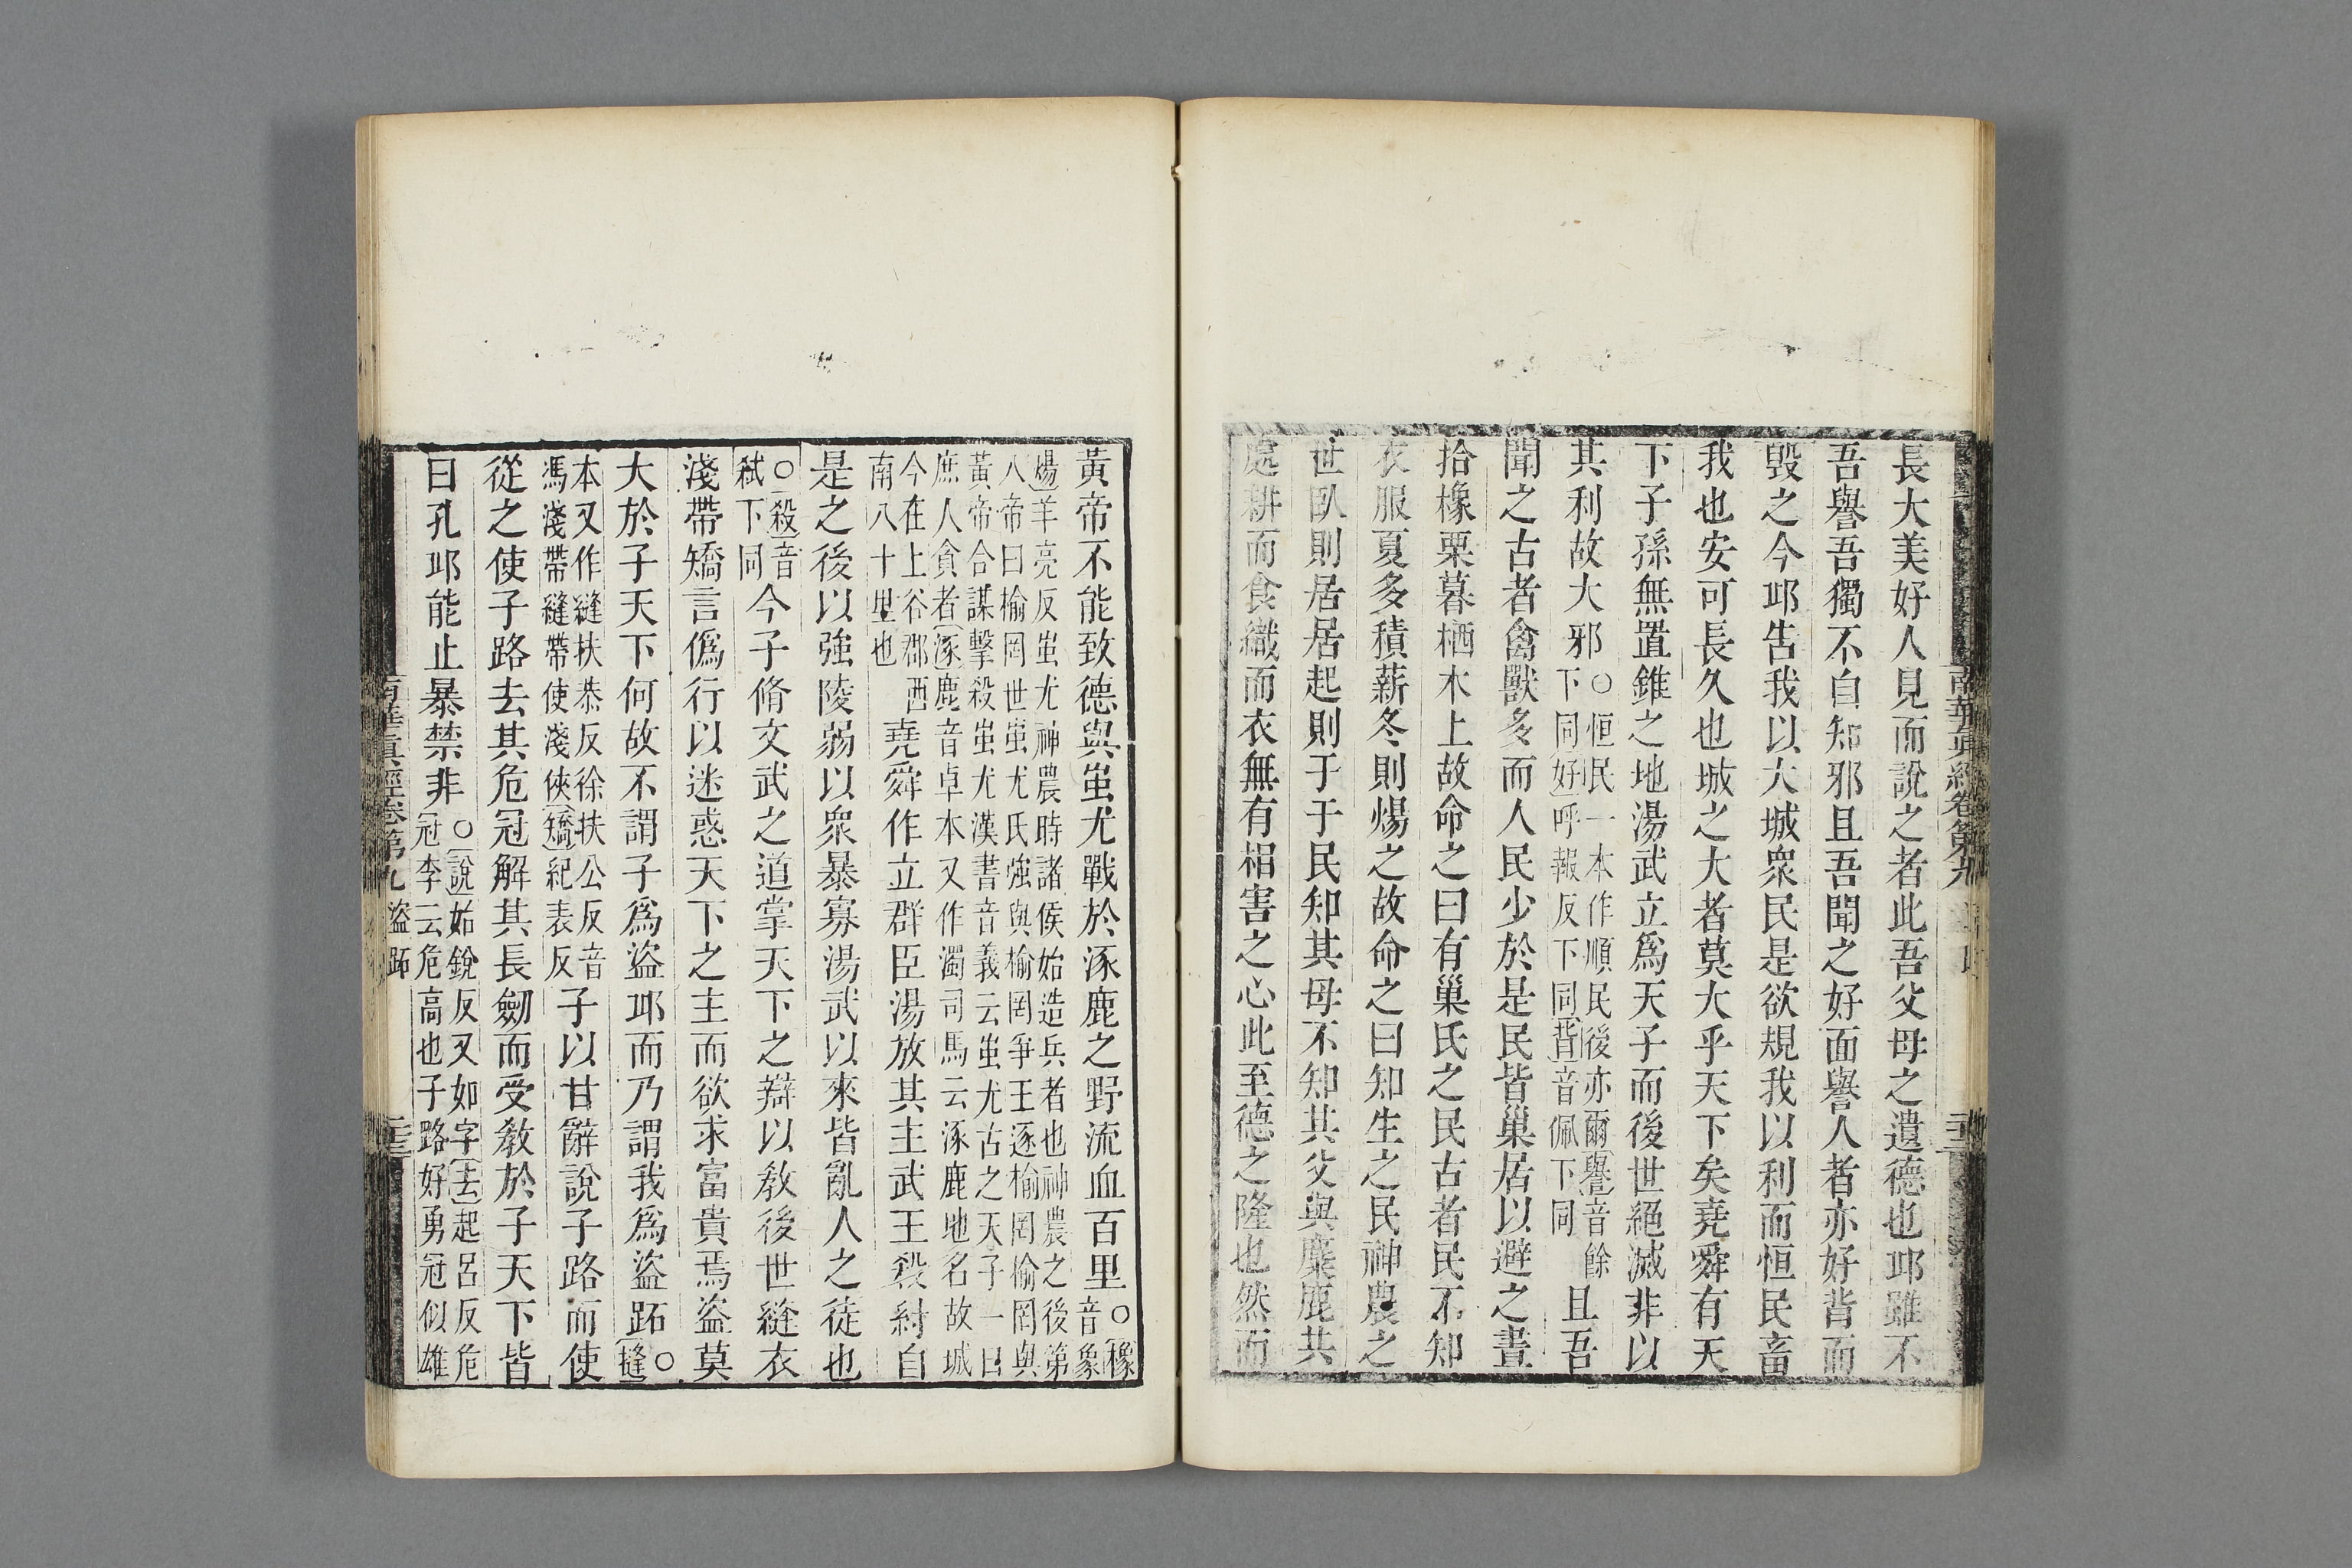 長大美好人見而說之者此吾父母之遺德也丘雖不
吾譽吾獨不自知邪且吾聞之好面譽人者亦好背而
毀之今丘告我以大城衆民是欲規我以利而恒民畜
我也安可長久也城之大者莫大乎天下矣堯舜有天
下子孫無置錐之地湯武立爲天子而後世絕滅非以
其利故大邪○恒民一本作順民後亦爾譽音餘下同好呼報反下同背音佩下同且吾
聞之古者禽獸多而人民少於是民皆巢居以避之晝
拾橡栗暮栖木上故命之曰有巢氏之民古者民不知
衣服夏多積薪冬則煬之故命之曰知生之民神農之
世臥則居居起則于于民知其母不知其父與麋鹿共
處耕而食織而衣無有相害之心此至德之隆也然而
南華眞經卷第九
黃帝不能致德與蚩尤戰於涿鹿之野流血百里○橡音象
煬羊亮反蚩尤神農時諸侯始造兵者也神農之後第
八帝曰榆罔世蚩尤氏強與榆罔爭王逐榆罔榆罔與
黃帝合謀擊殺蚩尤漢書音義云蚩尤古之天子一曰
庶人貪者涿鹿音卓本又作濁司馬云涿鹿地名故城
今在上谷郡西南八十里也堯舜作立群臣湯放其主武王殺紂自
是之後以強陵弱以衆暴寡湯武以來皆亂人之徒也
○殺音弒下同今子脩文武之道掌天下之辯以敎後世縫衣
淺帶矯言僞行以迷惑天下之主而欲求富貴焉盜莫
大於子天下何故不謂子爲盜丘而乃謂我爲盜跖○縫
本又作縫扶恭反徐扶公反音馮淺帶縫帶使淺俠矯紀表反子以甘辭說子路而使
從之使子路去其危冠解其長劒而受敎於子天下皆
曰孔丘能止暴禁非○說始銳反又如字去起呂反危冠李云危高也子路好勇冠似雄
南華眞經卷第九 盜跖 二十三